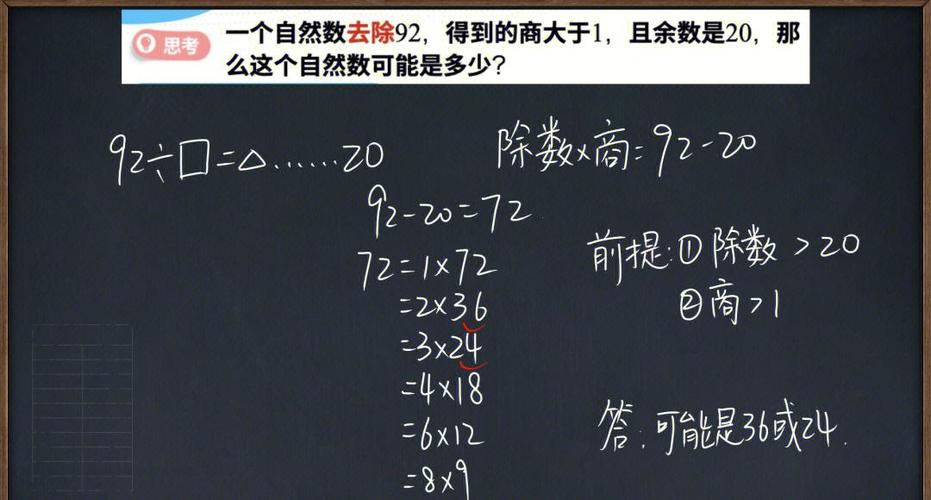 思考
一个自然数去除92，得到的商大于1，且余数是20，那
么这个自然数可能是多少？
92÷□=△……20
除数×商=92-20
92-20=72
72=1×72
=2×36
=3×24
=4×18
=6×12
=8×9
前提:①除数>20
②商>1
答:可能是36或24.